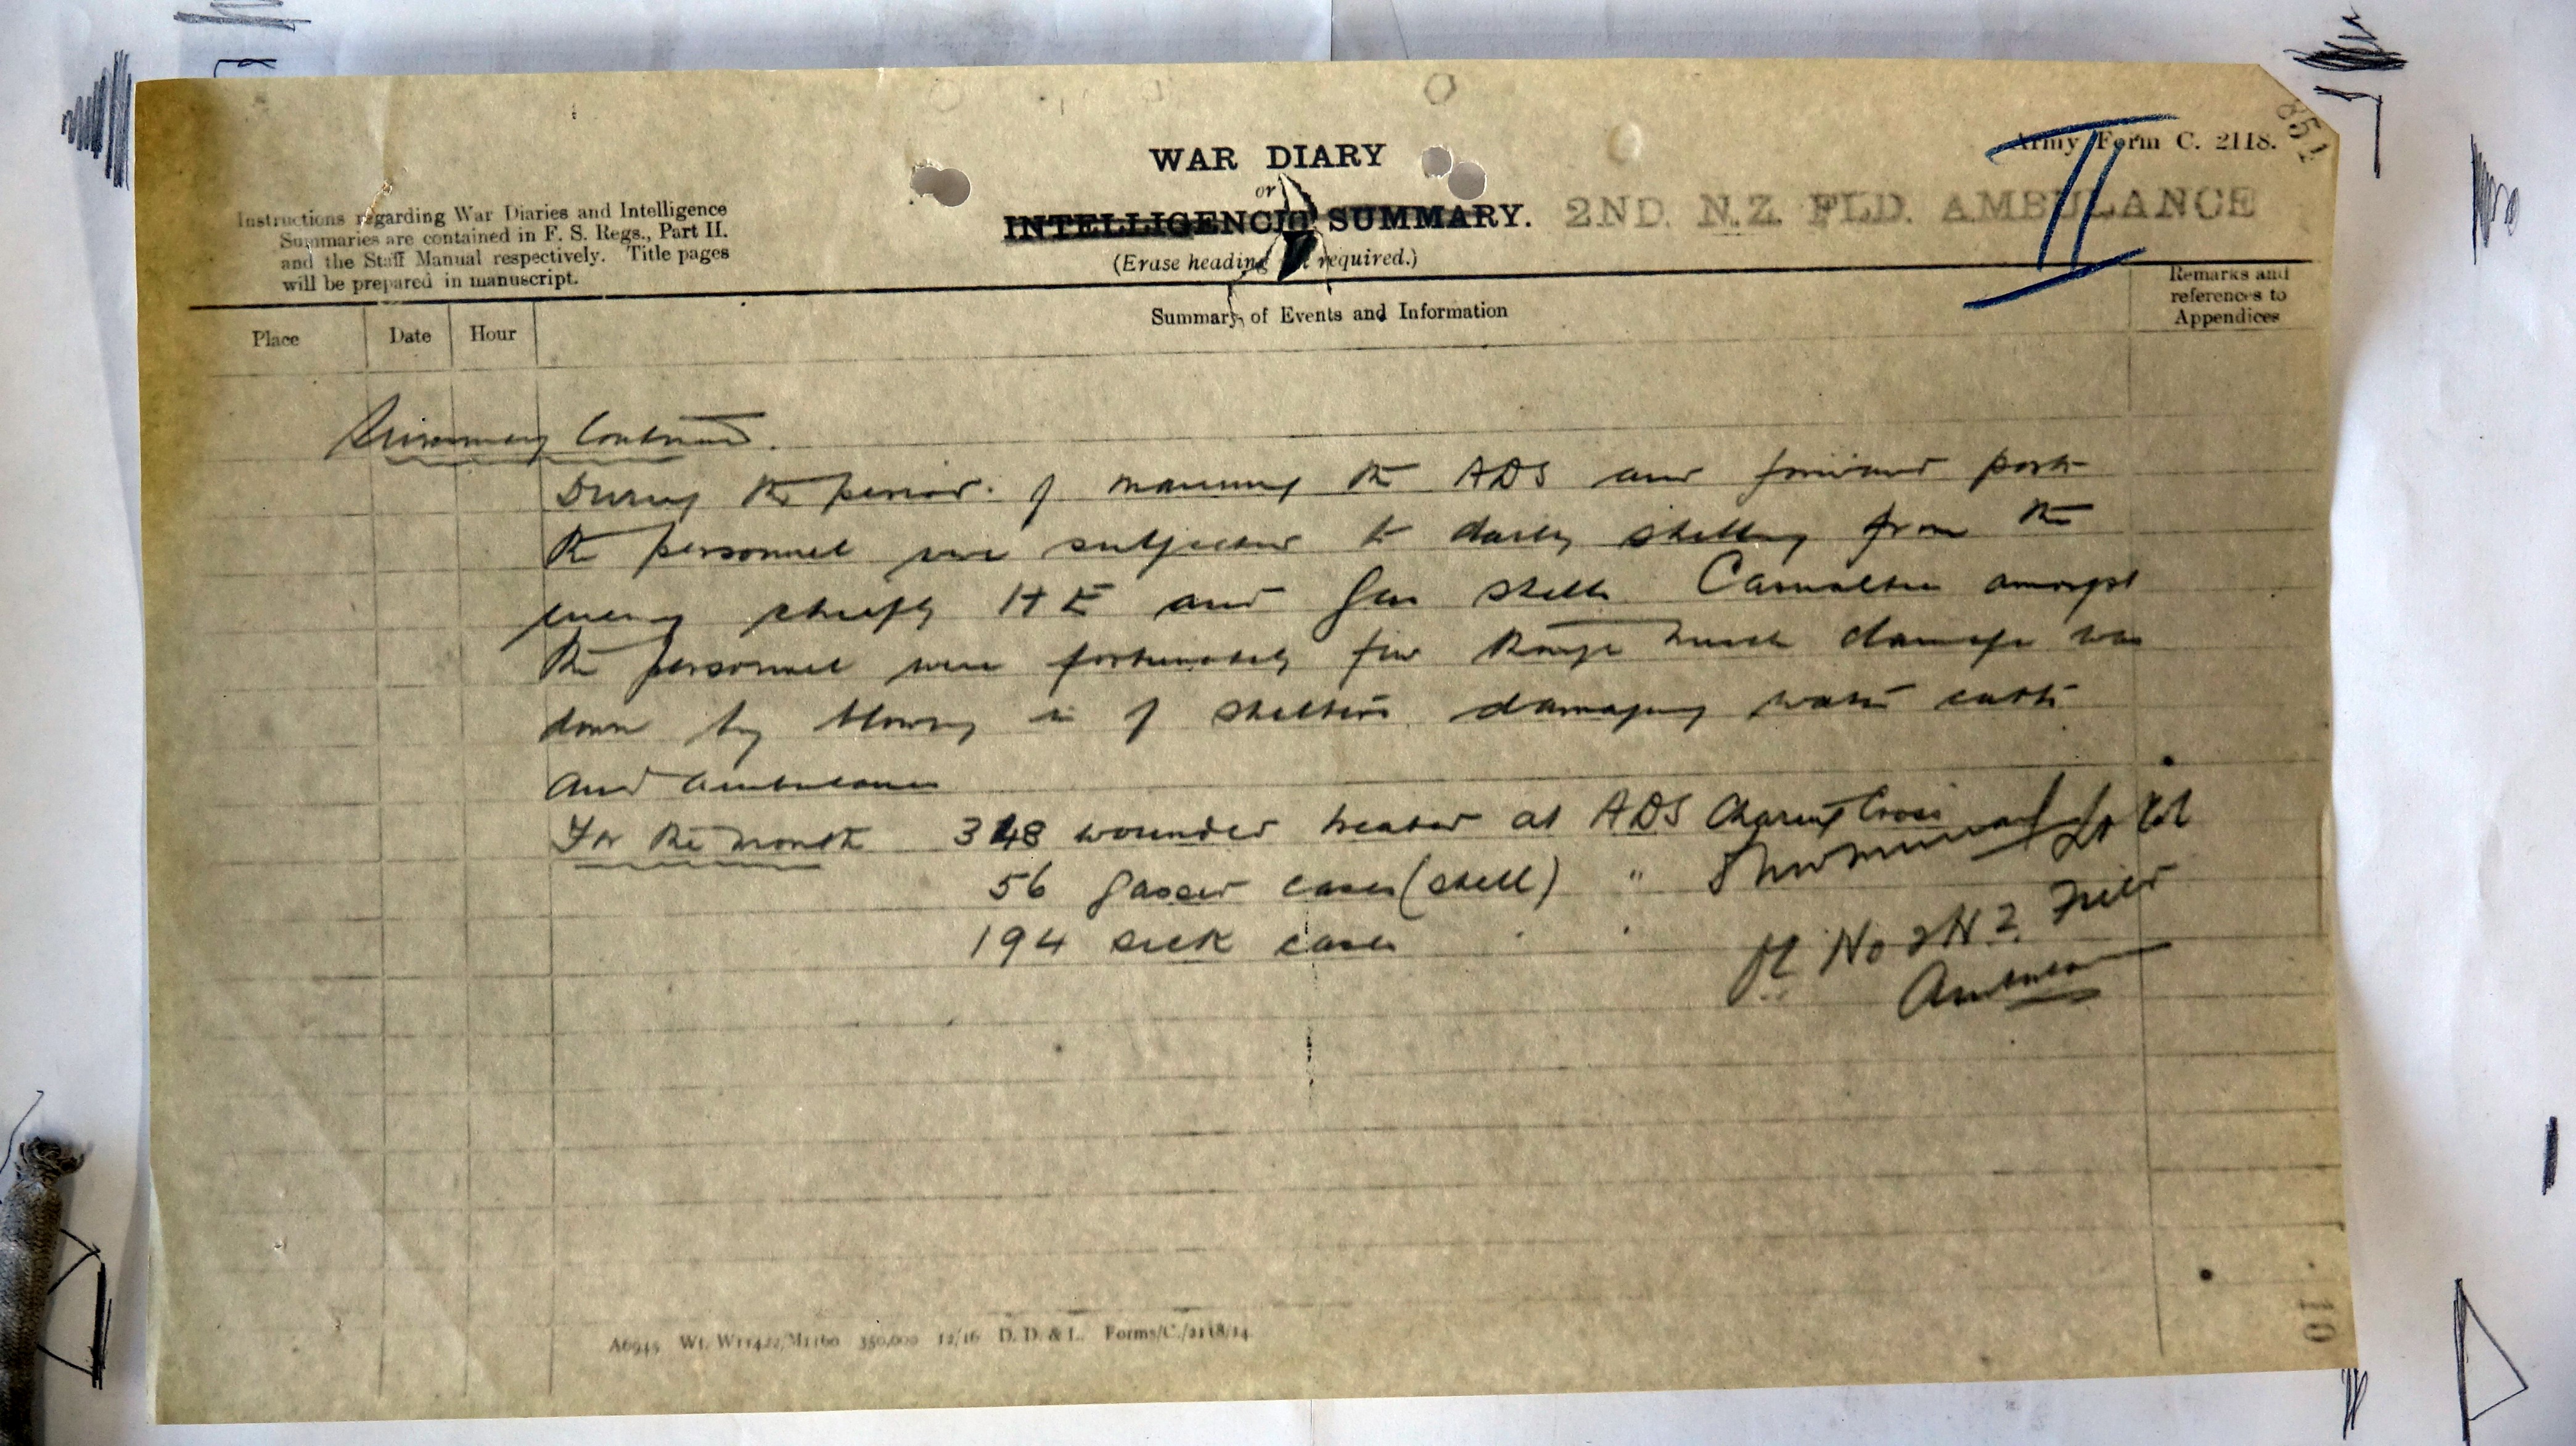 Army Form C. 2118.
851
II
WAR DIARY
or
INTELLIGENCE SUMMARY.
2ND. N.Z. FLD. AMBULANCE
(Erase heading not required.)
Instructions regarding War Diaries and Intelligence
Summaries are contained in F. S. Regs., Part II.
and the Staff Manual respectively. Title pages
will be prepared in manuscript.
Place
Date
Hour
Summary of Events and Information
Remarks and
references to
Appendices
Summary Continued.
During the period of manning the ADS and forward posts
the personnel were subjected to daily shelling from the
enemy chiefly HE and Gas shells Casualties amongst
the personnel were fortunately few though much damage was
done by blowing in of shelters damaging water carts
and ambulances
For the month 348 wounded treated at ADS Charing Cross
56 gassed cases (shell) "
194 sick cases " "
Lt Col
No 2 N Z. Field
Ambulance
A6945 Wt. W11422/M1160 350,000 12/16 D. D. & L. Forms/C./2118/14.
10